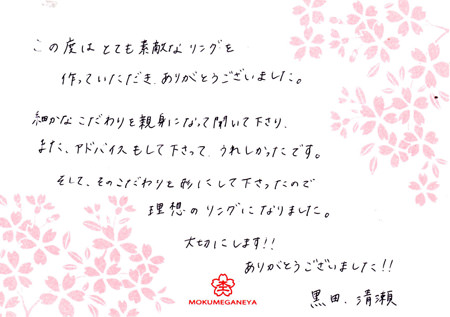 この度は とても素敵な リングを
作っていただき、ありがとうございました。
細かな こだわりを 親身になって聞いて下さり、
また、アドバイスもして下さって、うれしかったです。
そして、そのこだわりを形にして下さったので
理想のリングになりました。
大切にします!!
ありがとうございました!!
MOKUMEGANEYA
黒田、清瀬